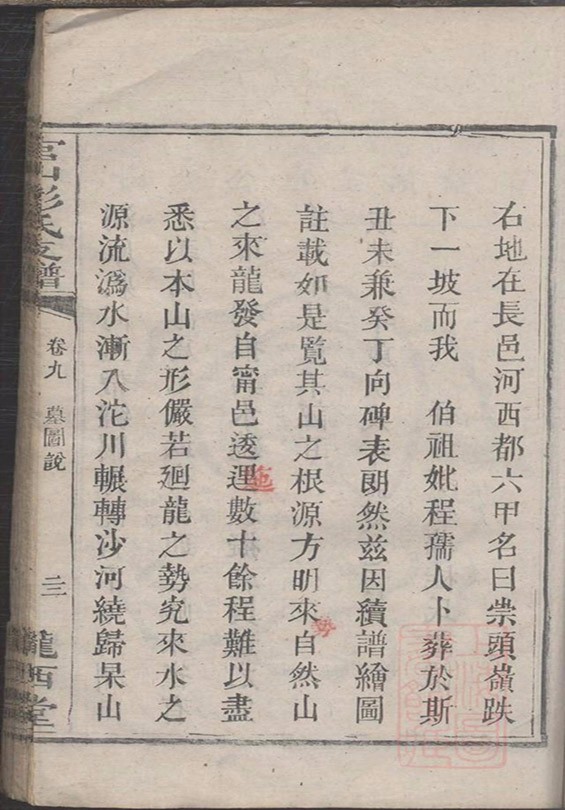 右地在長邑河西都六甲名曰崇頭嶺跌
下一坡而我　伯祖妣程孺人卜葬於斯
丑未兼癸丁向碑表朗然兹因續譜繪圖
註載如是覽其山之根源方明來自然山
勢
之來龍發自甯邑逶理數十餘程難以盡
迤
悉以本山之形儼若廻龍之勢究來水之
源流溈水漸入沱川輾轉沙河繞歸杲山
富山彭氏支譜
卷九　墓圖說
二三
隴西堂